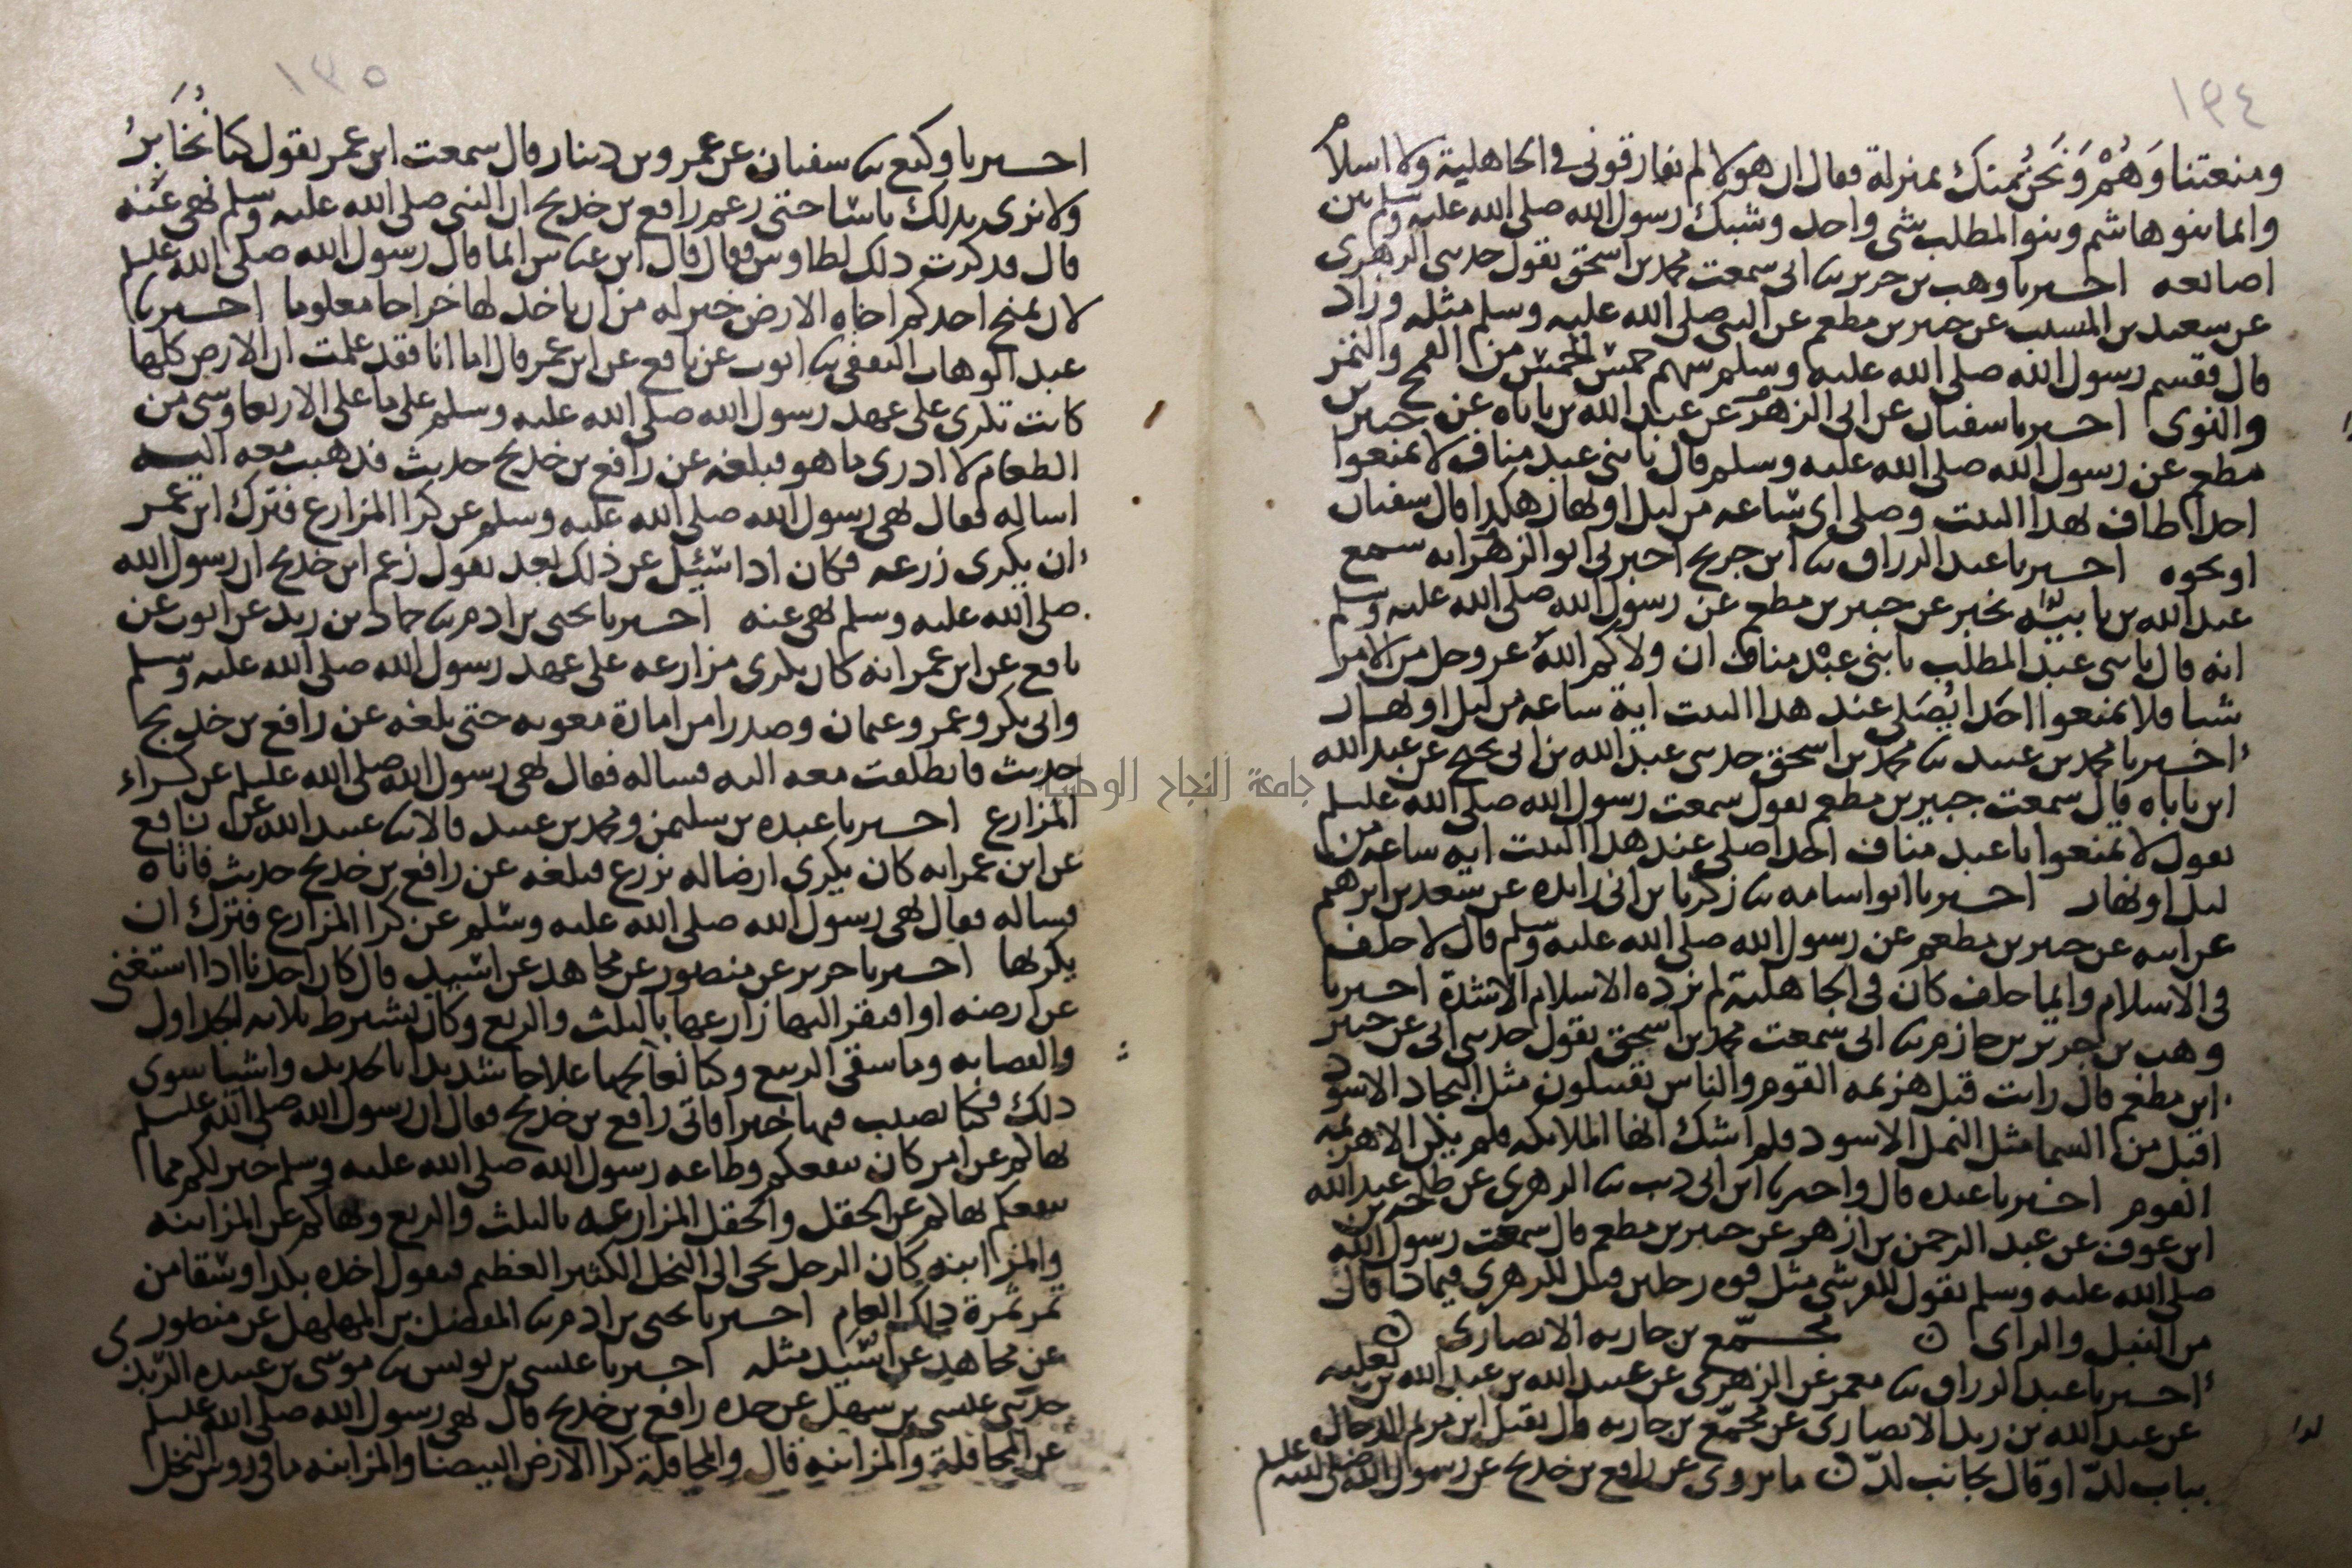 ١٣٤
ومنعتنا وَهُمْ وَنَحْنُ منك بمنزلة فقال ان هولا لم يفارقوني في الجاهلية ولا اسلام
وانما بنو هاشم وبنو المطلب شي واحد وشبك رسول الله صلى الله عليه وسلم بين
اصابعه اخبرنا وهب بن جرير نا ابي سمعت محمد بن اسحق يقول حدثني الزهري
عن سعيد بن المسيب عن جبير بن مطعم عن النبي صلى الله عليه وسلم مثله وزاد
قال فقسم رسول الله صلى الله عليه وسلم سهم خمس الخمس من القمح والتمر
والنوى اخبرنا سفيان عن ابي الزهر عن عبد الله بن باباه عن جبير بن
مطعم عن رسول الله صلى الله عليه وسلم قال يا بني عبد مناف لا تمنعوا
احدا طاف بهذا البيت وصلى اي ساعة من ليل او نهار هكذا قال سفيان
او نحوه اخبرنا عبد الرزاق نا ابن جريج اخبرني ابو الزهر انه سمع
عبد الله بن بابيه يخبر عن جبير بن مطعم عن رسول الله صلى الله عليه وسلم
انه قال يا بني عبد المطلب يا بني عبد مناف ان ولاكم الله عز وجل من الامر
شيا فلا تمنعوا احدا يُصَلي عند هذا البيت اية ساعة من ليل او نهار
اخبرنا محمد بن عبيد نا محمد بن اسحق حدثني عبد الله بن ابي نجيح عن عبد الله
ابن باباه قال سمعت جبير بن مطعم يقول سمعت رسول الله صلى الله عليه وسلم
يقول لا تمنعوا يا عبد مناف احدا صلى عند هذا البيت اية ساعة من
ليل او نهار اخبرنا ابو اسامه نا زكريا بن ابي زايده عن سعد بن ابرهيم
عن ابيه عن جبير بن مطعم عن رسول الله صلى الله عليه وسلم قال لا حلف
في الاسلام وايما حلف كان في الجاهلية لم يزده الاسلام الا شدة اخبرنا
وهب بن جرير بن حازم نا ابي سمعت محمد بن اسحق يقول حدثني ابي عن جبير
ابن مطعم قال رايت قبل هزيمه القوم والناس يقتتلون مثل البجاد الاسود
اقبل من السما مثل النمل الاسود فلم اشك انها الملائكه فلم يكن الا هزيمه
القوم اخبرنا عبده قال واخبرنا ابن ابي ذيب نا الزهري عن طلحة بن عبد الله
ابن عوف عن عبد الرحمن بن ازهر عن جبير بن مطعم قال سمعت رسول الله
صلى الله عليه وسلم يقول للقرشي مثل قوه رجلين قيل للزهري فيما ذا قال
من النبل والراي ن مجمّع بن جاريه الانصاري ن
اخبرنا عبد الرزاق نا معمر عن الزهري عن عبيد الله بن عبد الله بن ثعلبه
عن عبد الله بن زيد الانصاري عن مجمّع بن جاريه قال يقتل ابن مريم الدجال
بباب لدّ او قال بجانب لدّ ن ما يروى عن رافع بن خديج عن رسول الله صلى الله عليه وسلم
١٣٥
اخبرنا وكيع نا سفيان عن عمرو بن دينار قال سمعت ابن عمر يقول كنا نُخَابِرُ
ولا نرى بذلك باسا حتى زعم رافع بن خديج ان النبي صلى الله عليه وسلم نهى عنه
قال فذكرت ذلك لطاوس فقال قال ابن عباس انما قال رسول الله صلى الله عليه وسلم
لان يمنح احدكم اخاه الارض خير له من ان ياخذ لها خراجا معلوما اخبرنا
عبد الوهاب الثقفي نا ايوب عن نافع عن ابن عمر قال اما انا فقد علمت ان الارض كلها
كانت تكرى على عهد رسول الله صلى الله عليه وسلم على ما على الاربعا وشي من
الطعام لا ادري ما هو فبلغه عن رافع بن خديج حديث فذهبت معه اليه
اساله فقال نهى رسول الله صلى الله عليه وسلم عن كرا المزارع فترك ابن عمر
ان يكري زرعه فكان اذا سُئِل عن ذلك بعد يقول زعم ابن خديج ان رسول الله
صلى الله عليه وسلم نهى عنه اخبرنا يحيى بن ادم نا حماد بن زيد عن ايوب عن
نافع عن ابن عمر انه كان يكري مزارعه على عهد رسول الله صلى الله عليه وسلم
وابي بكر وعمر وعثمان وصدرا من امارة معويه حتى بلغه عن رافع بن خديج
حديث فانطلقت معه اليه فساله فقال نهى رسول الله صلى الله عليه وسلم عن كراء
المزارع اخبرنا عبده بن سليمن ومحمد بن عبيد قالا نا عبيد الله عن نافع
عن ابن عمر انه كان يكري ارضا له بزرع فبلغه عن رافع بن خديج حديث فاتاه
فساله فقال نهى رسول الله صلى الله عليه وسلم عن كرا المزارع فترك ان
يكريها اخبرنا جرير عن منصور عن مجاهد عن اسيد قال كان احدنا اذا استغنى
عن ارضه او افتقر اليها زارعها بالثلث والربع وكان يشترط ثلاثه الجداول
والقصابه وما سقى الربيع وكنا نعالجها علاجا شديدا بالحديد واشيا سوى
ذلك فكنا نصيب فيها خيرا فاتى رافع بن خديج فقال ان رسول الله صلى الله عليه وسلم
نهاكم عن امر كان ينفعكم وطاعه رسول الله صلى الله عليه وسلم خير لكم مما
ينفعكم نهاكم عن الحقل والحقل المزارعه بالثلث والربع ونهاكم عن المزابنه
والمزابنه كان الرجل يجي الى النخل الكثير العظيم فيقول اخذه بكذا وسقا من
تمر ثمرة ذلك العام اخبرنا يحيى بن ادم نا المفضل بن المهلهل عن منصور
عن مجاهد عن اسيد مثله اخبرنا عيسى بن يونس نا موسى بن عبيده الربذي
حدثني عيسى بن سهل عن جده رافع بن خديج قال نهى رسول الله صلى الله عليه وسلم
عن المحاقلة والمزابنه قال والمحاقلة كرا الارض البيضا والمزابنه ما في روس النخل
جامعة النجاح الوطنية